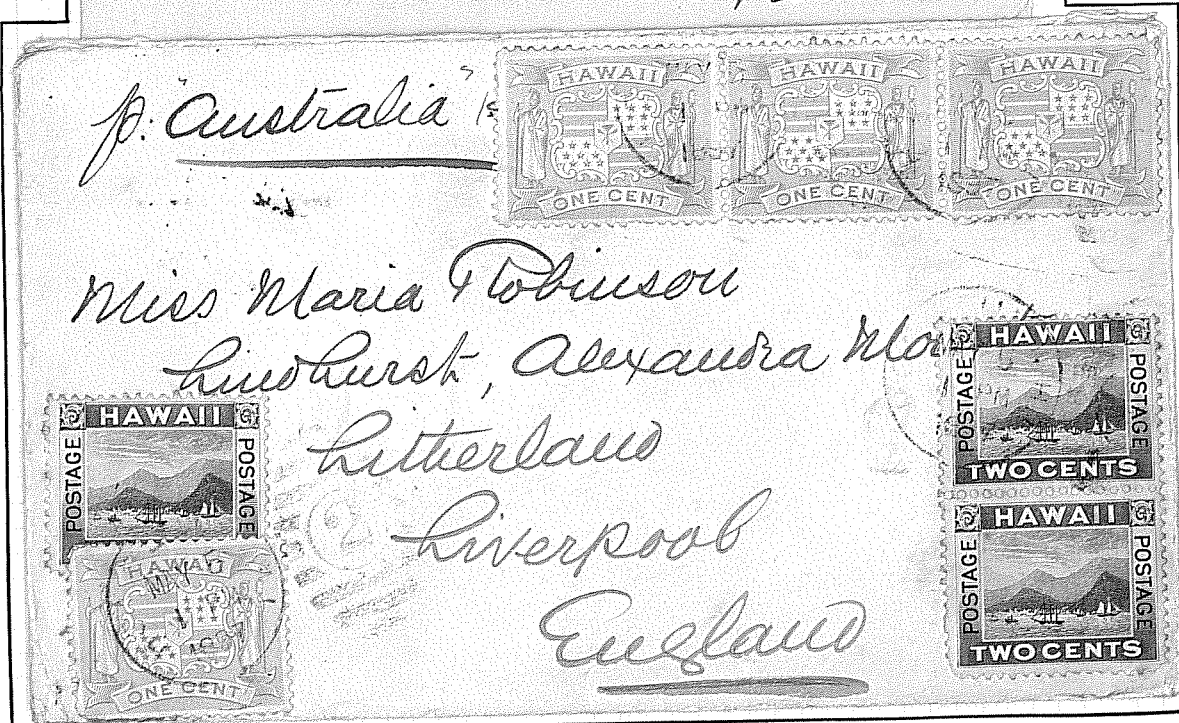 p. "Australia"
HAWAII
ONE CENT
HAWAII
ONE CENT
HAWAII
ONE CENT
Miss Maria Robinson
Lindhurst, Alexandra
Litherland
Liverpool
England
HAWAII
POSTAGE
POSTAGE
TWO CENTS
HAWAII
POSTAGE
POSTAGE
TWO CENTS
HAWAII
POSTAGE
POSTAGE
HAWAII
ONE CENT